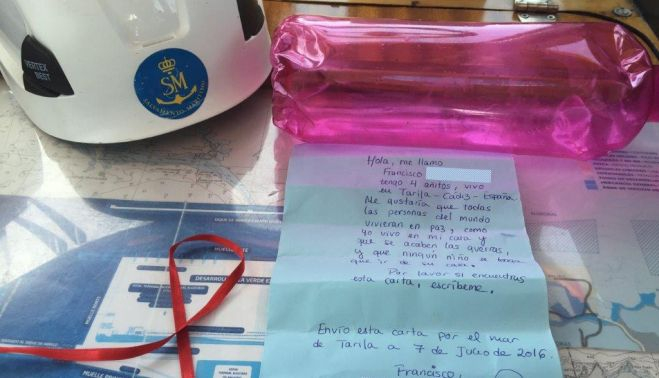 VERTEX
BEST
SM
SALVAMENTO MARÍTIMO
Hola, me llamo
Francisco
tengo 4 añitos, vivo
en Tarifa - Cádiz - España
Me gustaría que todas
las personas del mundo
vivieran en paz, como
yo vivo en mi casa y
que se acaben las guerras,
y que ningún niño se tenga
que ir de su casa.
Por favor si encuentras
esta carta, escríbeme.
Envío esta carta por el mar
de Tarifa a 7 de Julio de 2016.
Francisco.
DESARROLLO
LA VERDE
MUELLE